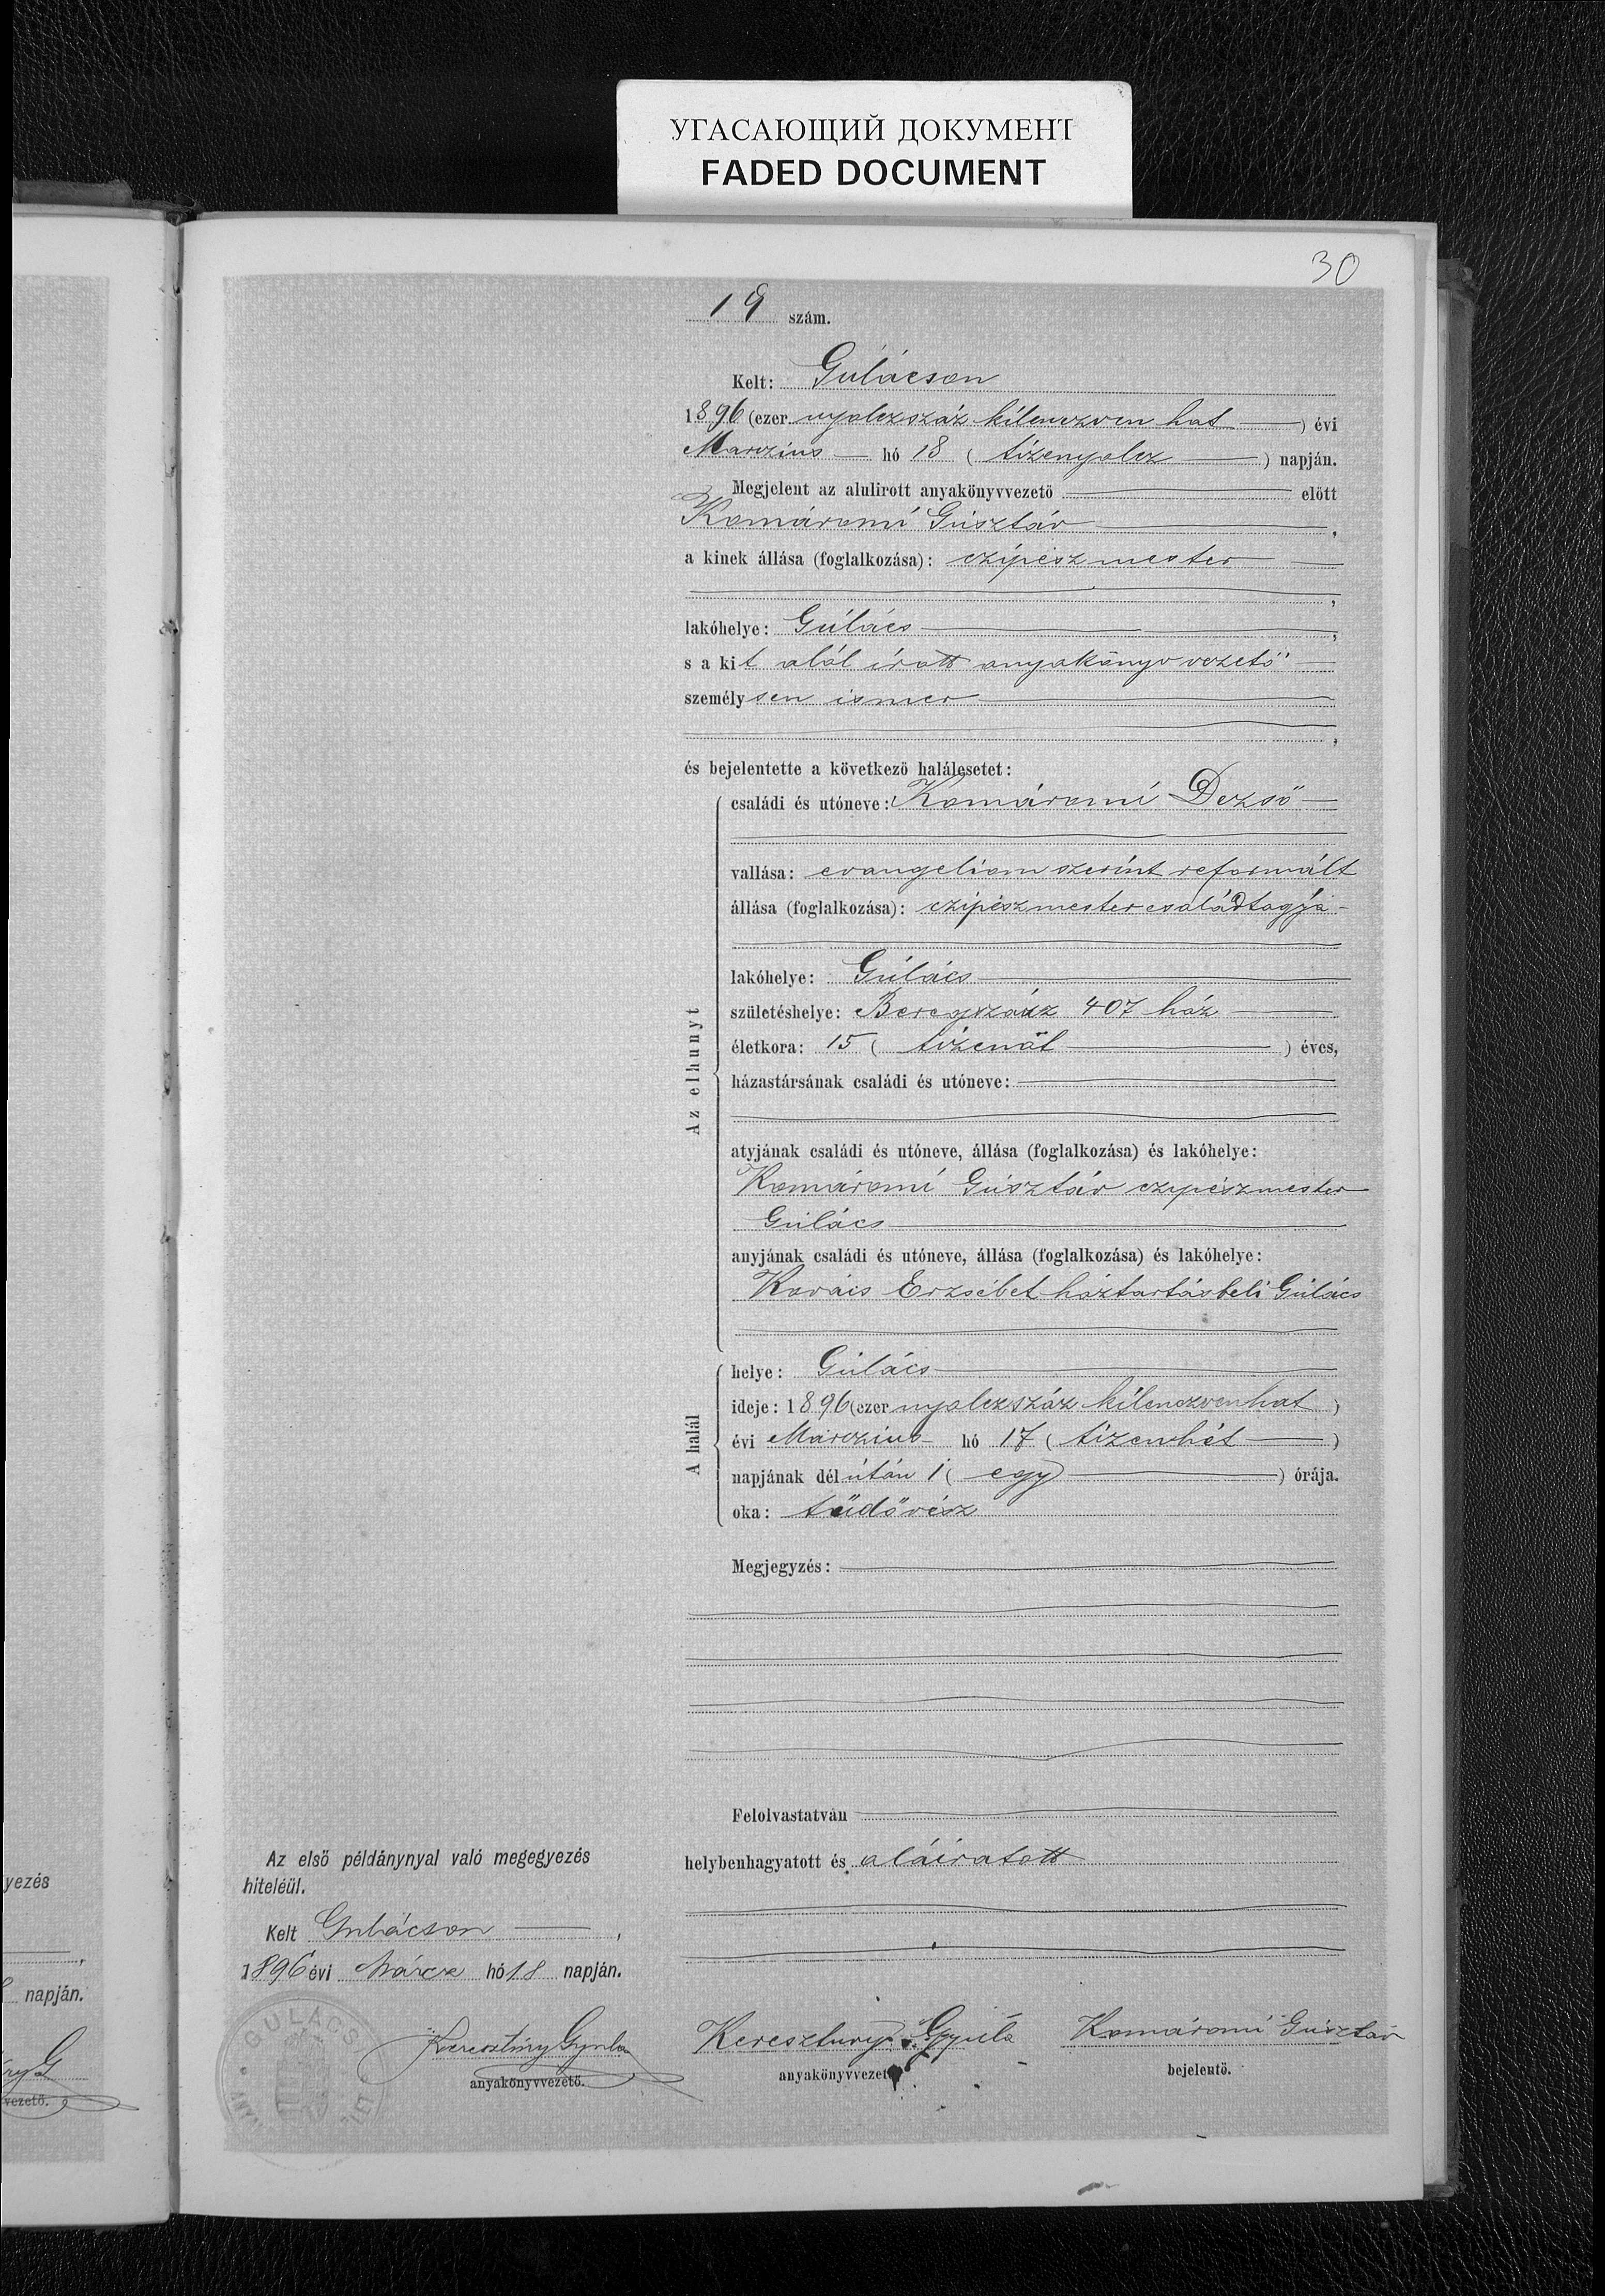 УГАСАЮЩИЙ ДОКУМЕНТ
FADED DOCUMENT
30
19 szám.
Kelt: Gulácson
1896 (ezer nyolczszáz kilenczven hat) évi
Marczius hó 18 (tizennyolcz) napján.
Megjelent az alulirott anyakönyvvezető előtt
Komáromi Gusztáv,
a kinek állása (foglalkozása): czipész mester
,
lakóhelye: Gulács,
s a kit alól irott anyakönyv vezető
személysen ismer
,
és bejelentette a következő halálesetet:
Az elhunyt
családi és utóneve: Komáromi Dezső
vallása: evangeliom szerint reformált
állása (foglalkozása): czipészmester családtagja
lakóhelye: Gulács
születéshelye: Beregszász 407 ház
életkora: 15 (tizenöt) éves,
házastársának családi és utóneve:
atyjának családi és utóneve, állása (foglalkozása) és lakóhelye:
Komáromi Gusztáv czipészmester
Gulács
anyjának családi és utóneve, állása (foglalkozása) és lakóhelye:
Kovács Erzsébet háztartásbeli Gulács
A halál
helye: Gulács
ideje: 1896 (ezer nyolczszáz kilenczvenhat)
évi Marczius hó 17 (tizenhét)
napjának délután 1 (egy) órája.
oka: tüdővész
Megjegyzés:
Felolvastatván
helybenhagyatott és aláiratott
Az első példánynyal való megegyezés
hiteléül.
Kelt Gulácson,
1896 évi Márcz hó 18 napján.
GULÁCS
Keresztúry Gyula
anyakönyvvezető.
Keresztury Gyula
anyakönyvvezető
Komáromi Gusztáv
bejelentő.
yezés
,
napján.
vezető.